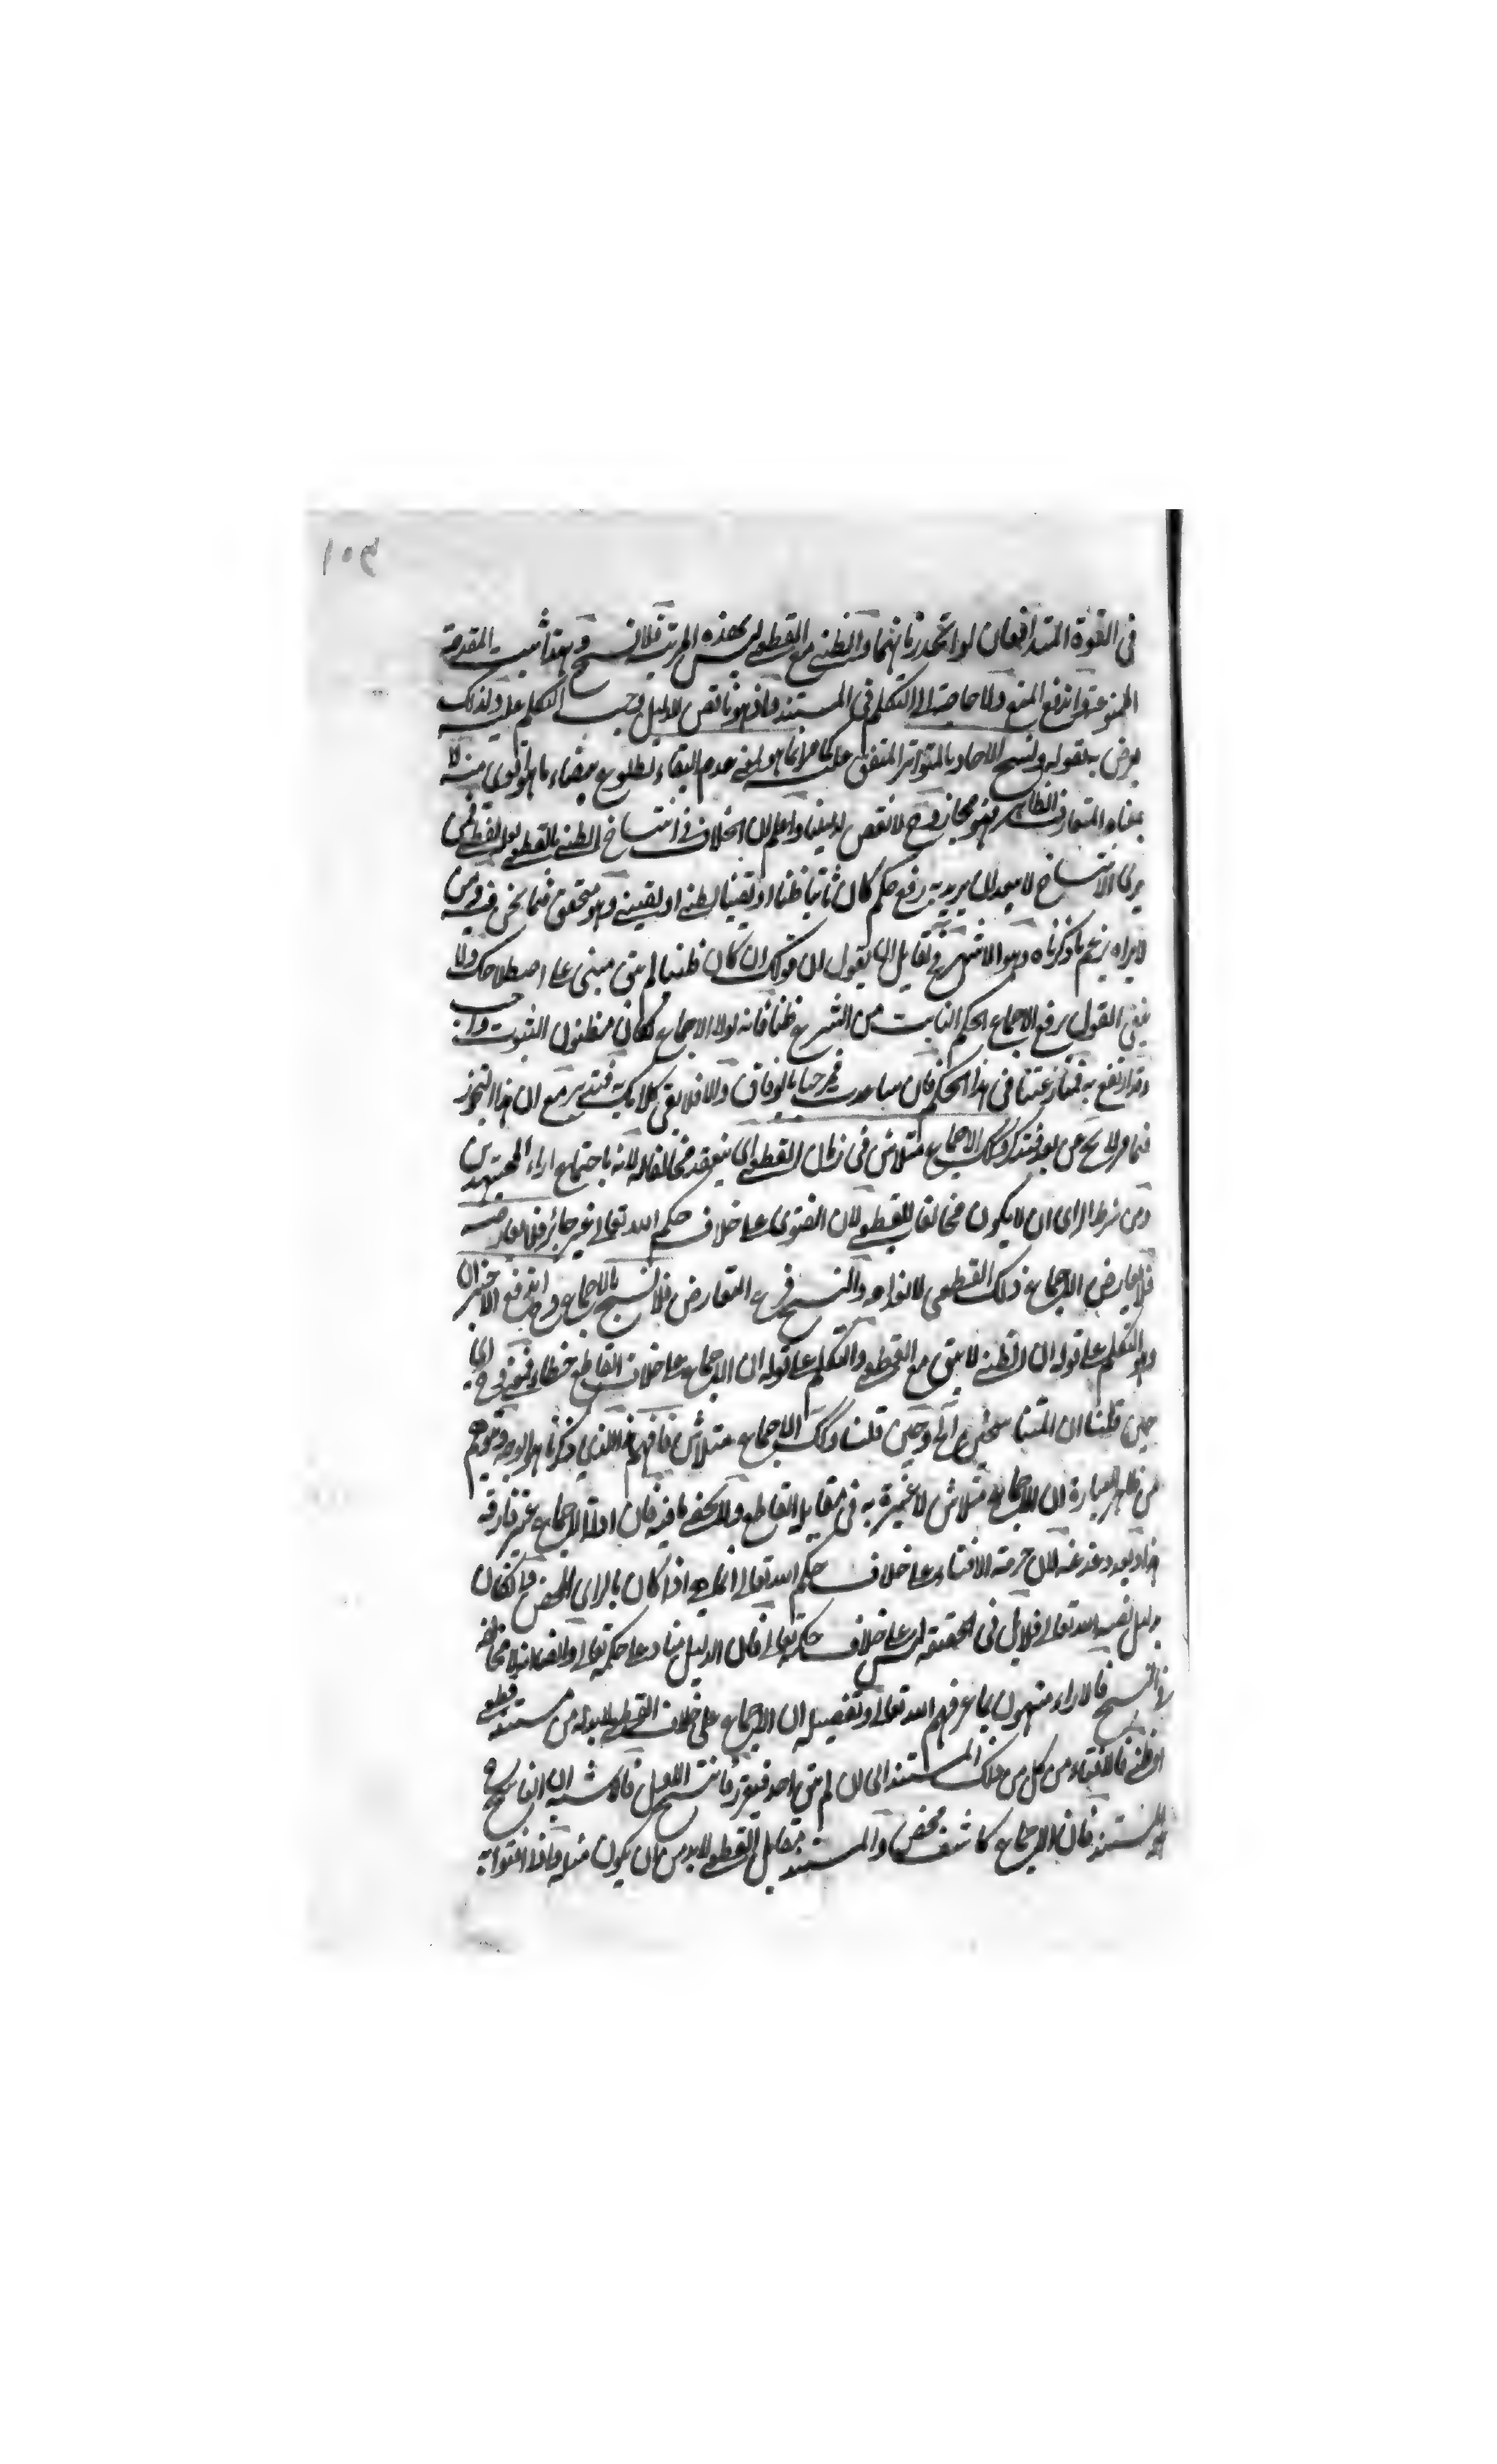 ١٠٣
في القوة المتدافعان لو اتحد زمانهما والظني مع القطعي ليس بهذه المرتبة فلا نسخ و بهذا ثبت المقدمة
الممنوعة واندفع المنع ولا حاجة الى التكلم في المستند واذ هو ناقض الدليل وجب التكلم عليه ولذلك
عرض به بقوله ونسخ الاحاد بالمتواتر المتفق عليه كما مر انما هو لمعنى عدم البقاء لطلوع بيضاء ما هو اقوى منه لا
بمعناه المتعارف الظاهر فهو مجاز وح لا نقض لدليلنا واعلم ان الخلاف في انتساخ الظني بالقطعي لفظي فمن
يرى الانتساخ لا يبعد ان يريد به رفع حكم كان ثابتا ظنا او يقينا بظني او يقيني وهو متحقق فيما نحن فيه ومن
لا يراه يزعم ما ذكرناه وهو الاشهر فح لقائل ان يقول ان قولك ان كان ظنيا لم يبق مبنى على اصطلاحك ولا
ينفي القول برفع الاجماع الحكم الثابت من الشرع ظنا فانه لولا الاجماع لكان مظنون الثبوت واجب
وقد ارتفع به فمنازعتنا في هذا الحكم فان ساعدت فمرحبا بالوفاق والا فلا يبقى كلامك به فتدبر مع ان هذا التجوز
فيما مر لا يخ عن بعد فتذكر وذلك الاجماع متلاش في زمان القطعي اي ينعقد مخالفا له لانه باجتماع اراء المجتهدين
ومن شرط الراى ان لا يكون مخالفا للقطعي لان الفتوى على خلاف حكم الله تعالى غير جائز فلا معارضه
فلا يعارض الاجماع ذلك القطعي لانعدامه والنسخ فرع التعارض فلا نسخ بالاجماع وح اندفع الاخيران
وهو التكلم على قوله ان الظني لا يبقى مع القطعي والتكلم على قوله ان الاجماع على خلاف القاطع خطاء فتفرق اي
حين قلنا ان المتنا سخين الخ وحين قلنا وذلك الاجماع متلاش فافهم فالذي ذكرنا هو الوجه وتوهم
من ظاهر العبارة ان الاجماع متلاش لا عبرة به في مقابلة القاطع ولا يخفى ما فيه فان ادلة الاجماع غير فارقه
هذا ويعود دغدغه لان حرمة الافتاء على خلاف حكم الله تعالى انما هو اذا كان بالراى المحض واما لو كان
بدليل نصبه الله تعالى فلا بل في الحقيقة ليس على خلاف حكمه تعالى فان الدليل مناد على حكمه تعالى وايضا انما مخالفه
في النسخ فالاراء منتهون بما عرفهم الله تعالى وتفصيله ان الاجماع على خلاف القطعي لا بد له من مستند قطعي
او ظني فالافتاء من كل من ذلك المستند الى ان لم يبق احد فتقرر فانتسخ الاول فالاشبه ان الناسخ ح
هو المستند فان الاجماع كاشف محض والمستند بمقابل القطعي لا بد من ان يكون مثله فاذا افتوا به